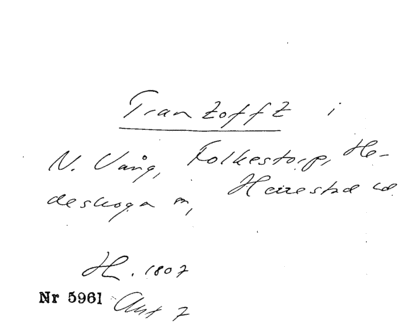 Tranzoffz i
N. Vång, Folkestorp, He-
deskoga m, Herrestad
H. 1807
Nr 5961 Akt 7